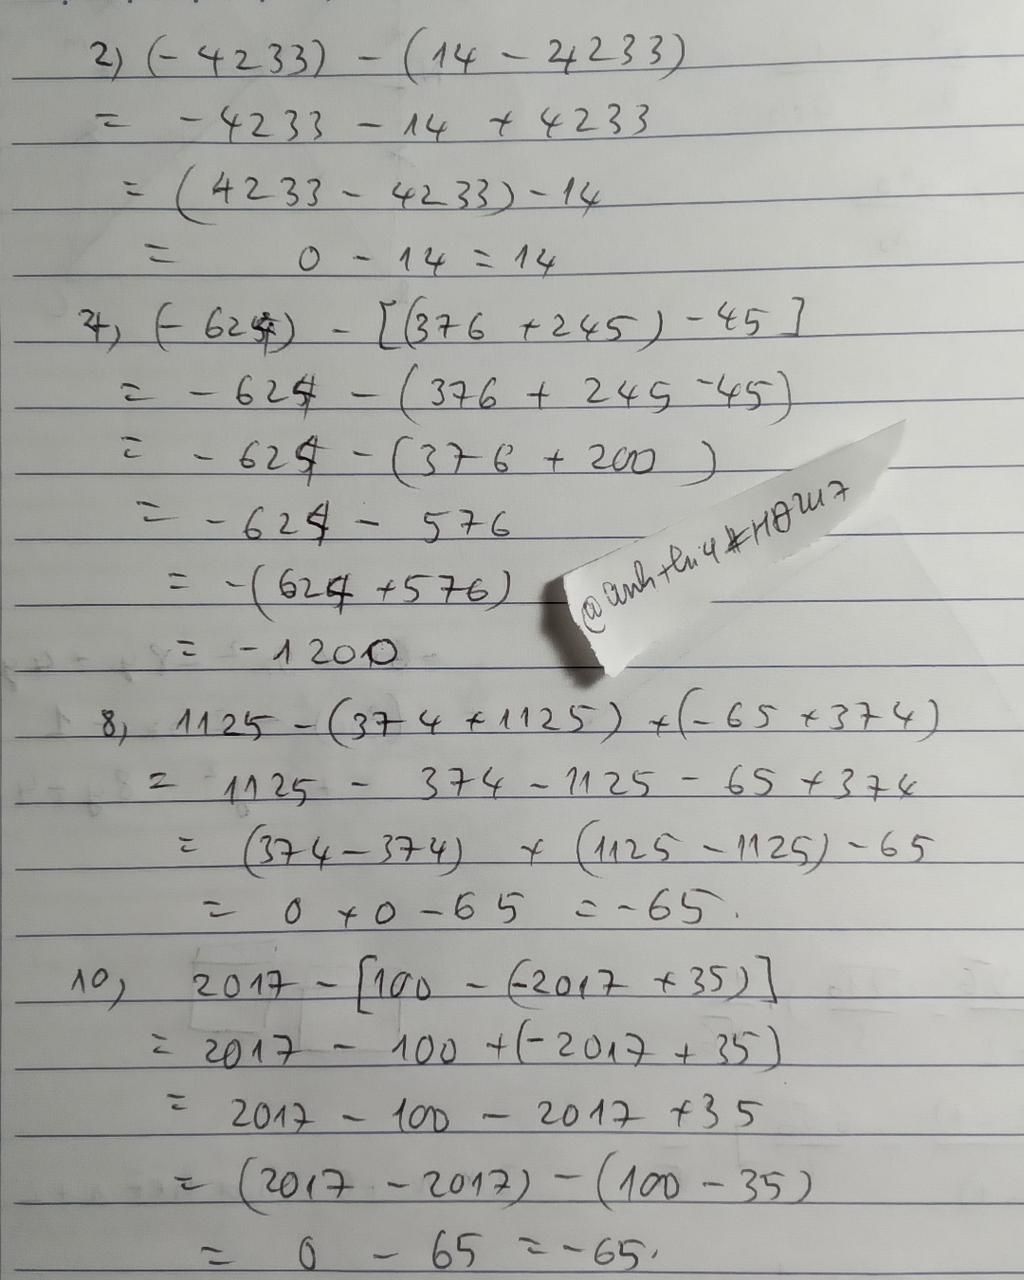 2) (-4233) - (14 - 4233)
= -4233 - 14 + 4233
= (4233 - 4233) - 14
= 0 - 14 = 14
4, (-624) - [(376 + 245) - 45]
= -624 - (376 + 245 - 45)
= -624 - (376 + 200)
= -624 - 576
= -(624 + 576)
= -1200
8, 1125 - (374 + 1125) + (-65 + 374)
= 1125 - 374 - 1125 - 65 + 374
= (374 - 374) + (1125 - 1125) - 65
= 0 + 0 - 65 = -65.
10, 2017 - [100 - (-2017 + 35)]
= 2017 - 100 + (-2017 + 35)
= 2017 - 100 - 2017 + 35
= (2017 - 2017) - (100 - 35)
= 0 - 65 = -65.